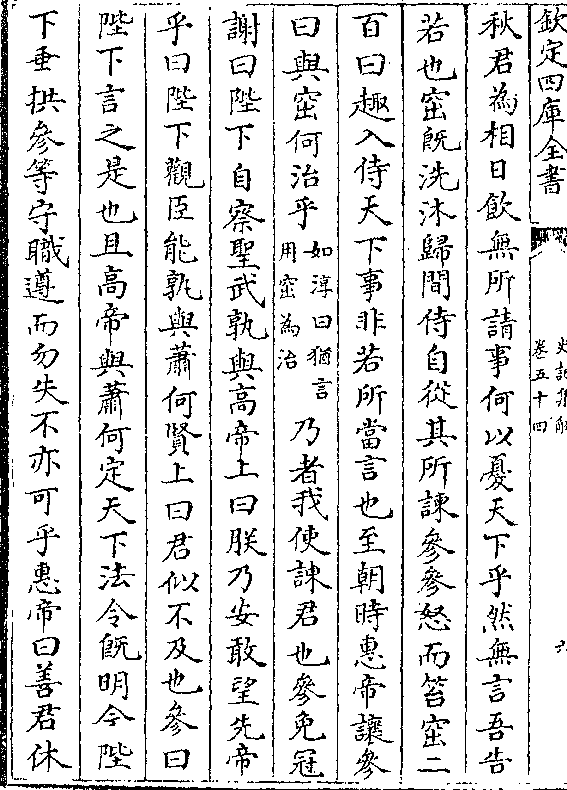 欽定四庫全書
史記集解
卷五十四
秋君為相日飲無所請事何以憂天下乎然無言吾告
若也窋既洗沐歸間侍自從其所諫參參怒而笞窋二
百曰趣入侍天下事非若所當言也至朝時惠帝讓參
曰與窋何治乎如淳曰猶言用窋為治乃者我使諫君也參免冠
謝曰陛下自察聖武孰與高帝上曰朕乃安敢望先帝
乎曰陛下觀臣能孰與蕭何賢上曰君似不及也參曰
陛下言之是也且高帝與蕭何定天下法令既明今陛
下垂拱參等守職遵而勿失不亦可乎惠帝曰善君休